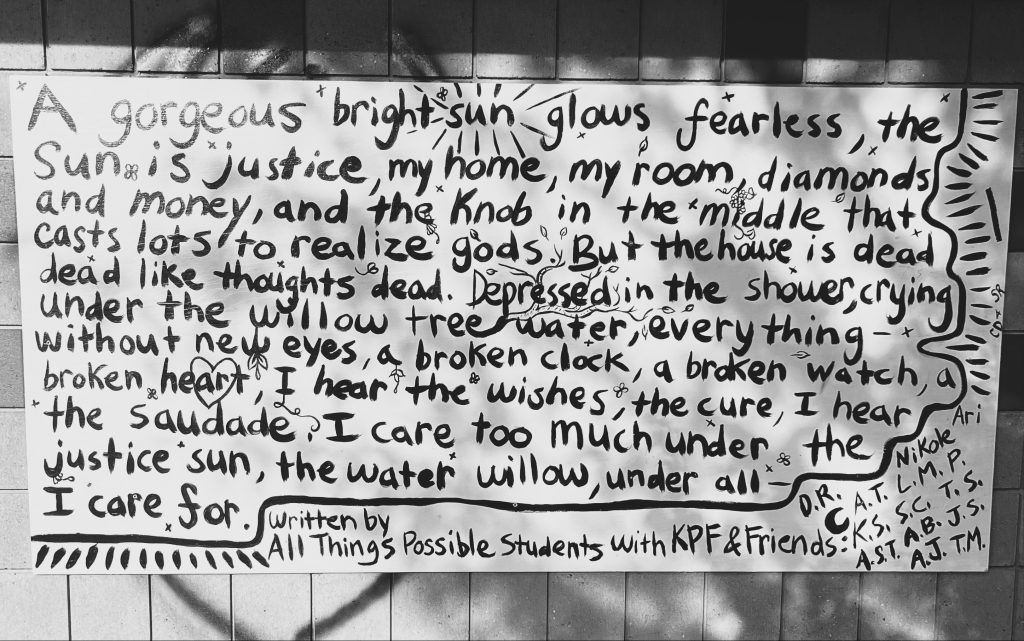 A gorgeous bright sun glows fearless, the
Sun is justice, my home, my room, diamonds
and money, and the Knob in the middle that
casts lots to realize gods. But the house is dead
dead like thoughts dead. Depressed in the shower, crying
under the willow tree water, everything -
without new eyes, a broken clock, a broken watch, a
broken heart, I hear the wishes, the cure, I hear
the saudade. I care too much under the
justice sun, the water willow, under all -
I care for.
written by
All Things Possible Students with KPF & Friends:
Ari
Nikole
D.R. A.T. L.M.P.
K.S. S.C. T.S.
A.S.T. A.B. J.S.
A.J. T.M.